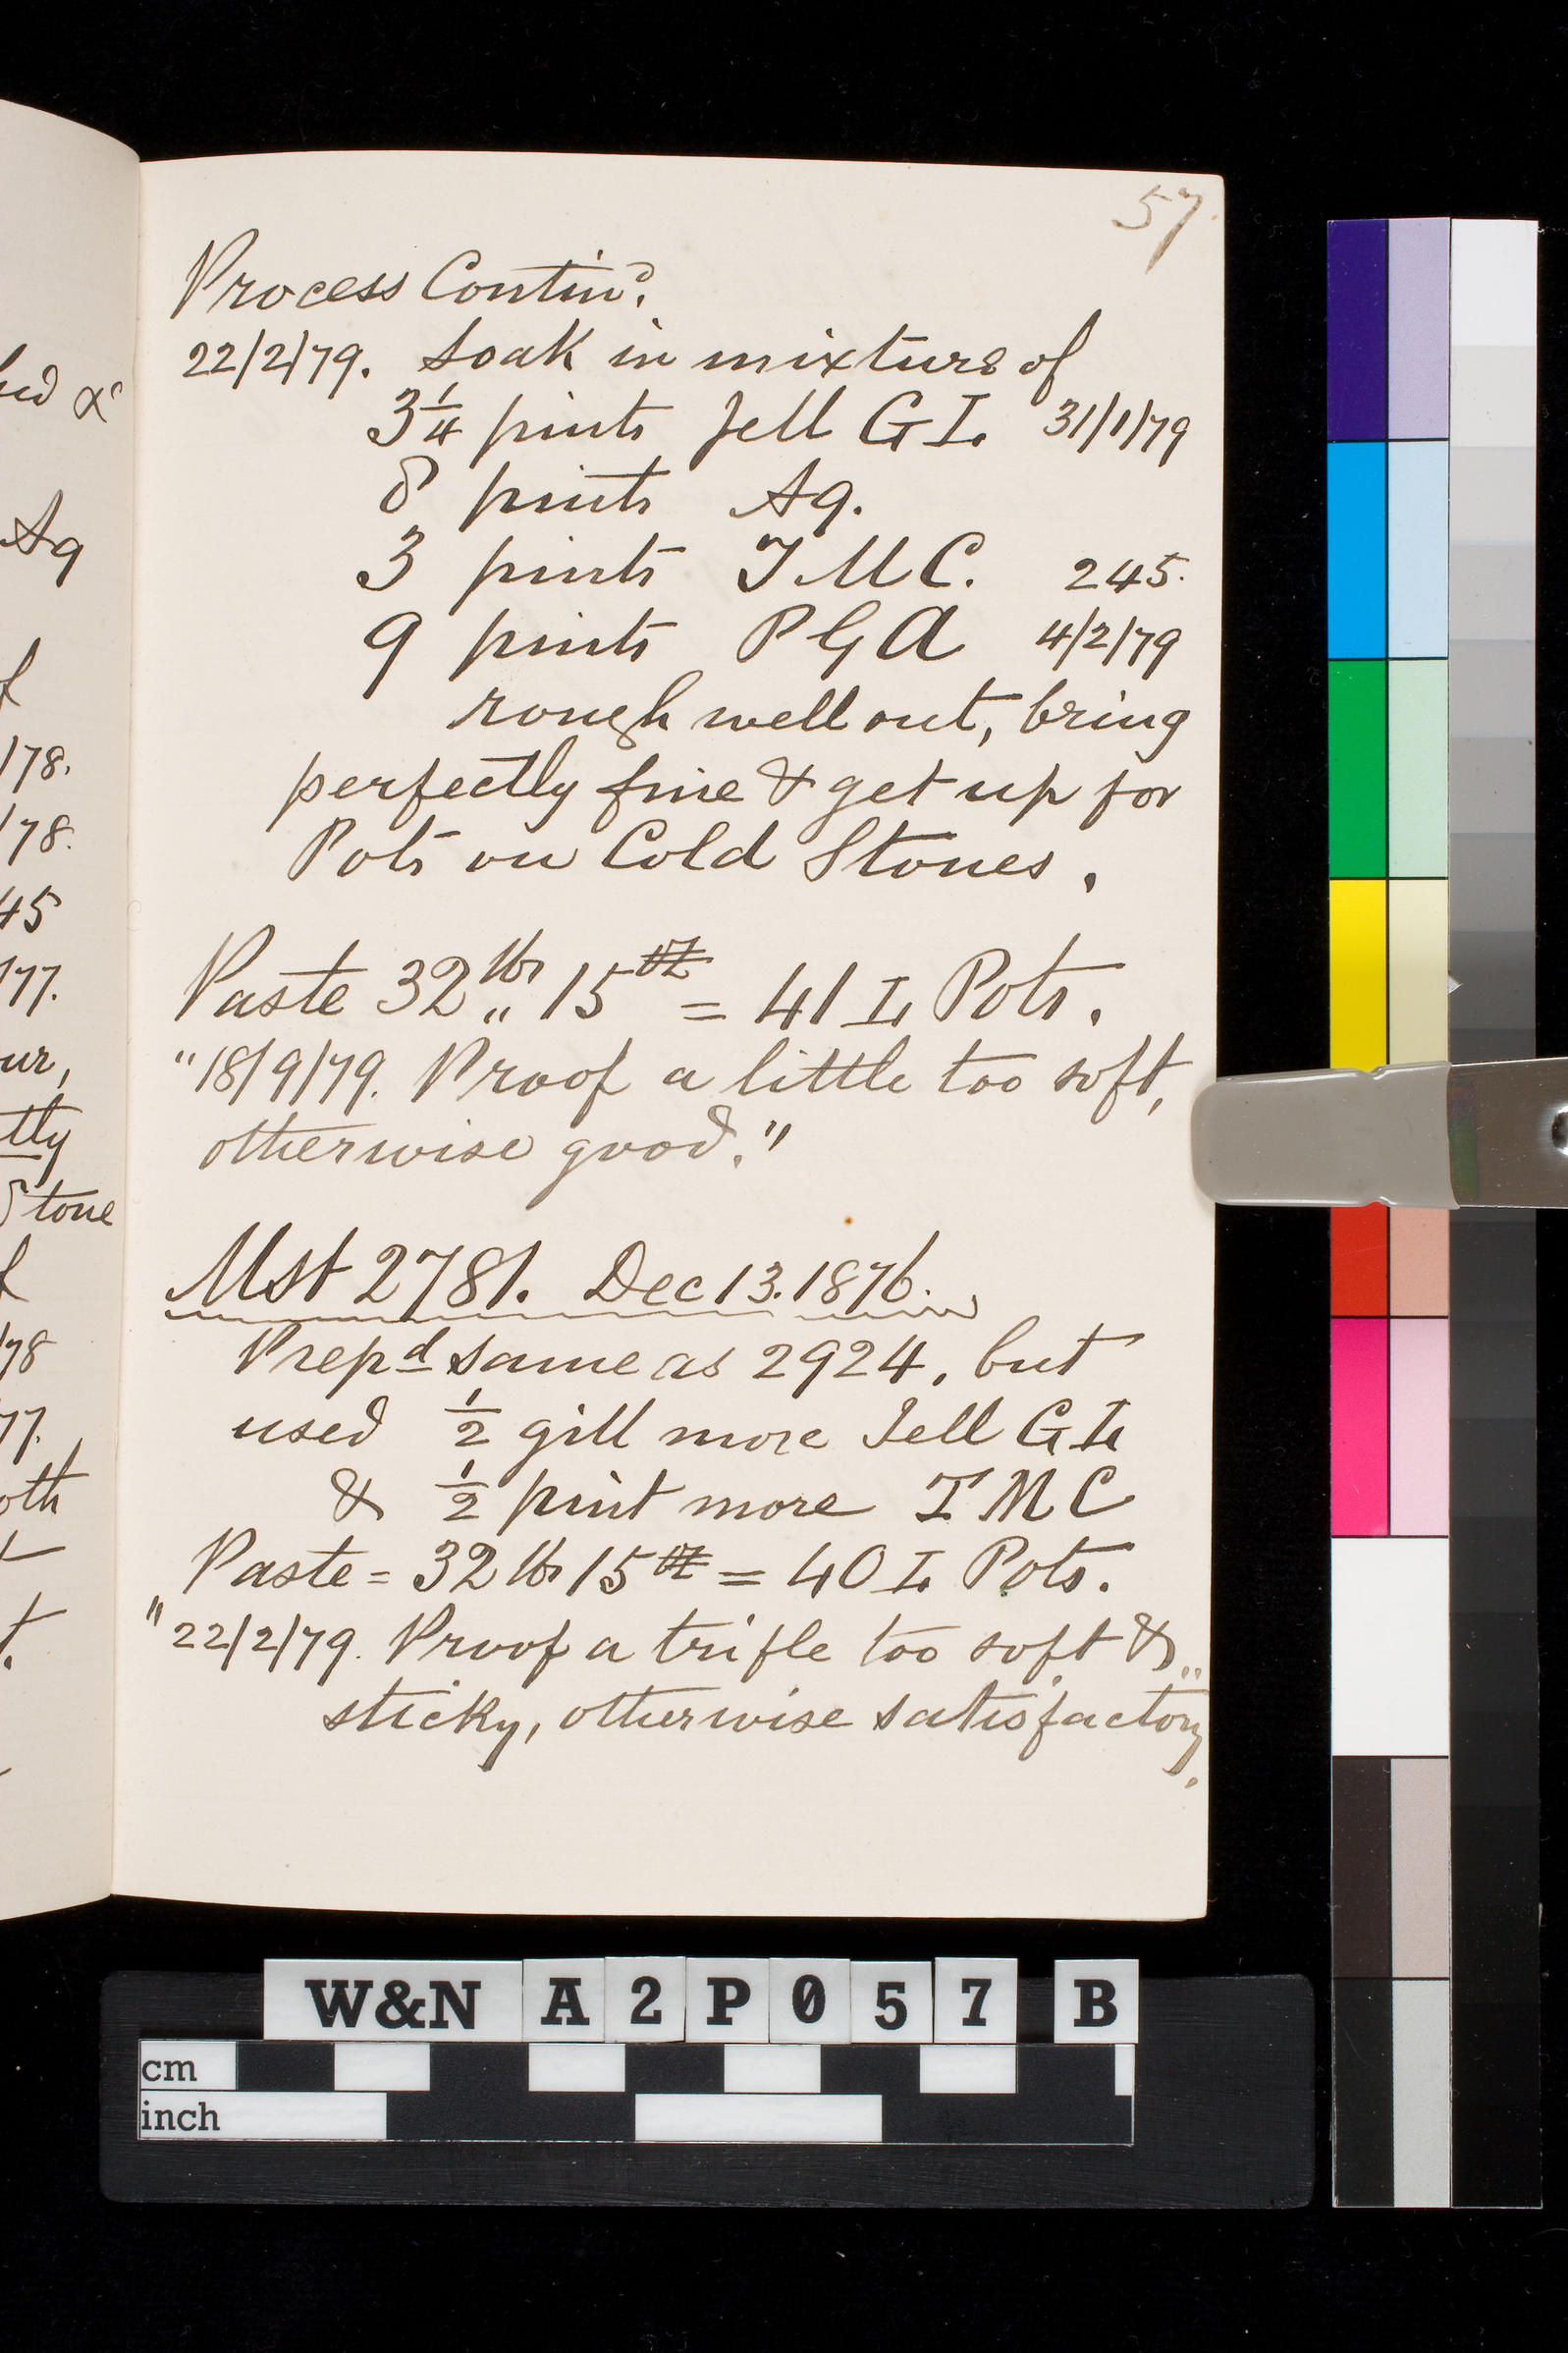 57
Process Contin.d
22/2/79. Soak in mixture of
3 1/4 pints Jell GL 31/1/79
8 pints Aq.
3 pints TMC. 245.
9 pints PGA 4/2/79
rough well out, bring
perfectly fine & get up for
Pots on Cold Stones.
Paste 32 lbs „ 15 oz = 41 L Pots.
"18/9/79. Proof a little too soft,
otherwise good."
Mst 2781. Dec 13. 1876.
Prepd same as 2924, but
used 1/2 gill more Jell GL
& 1/2 pint more TMC
Paste = 32 lbs 15 oz = 40 L Pots.
"22/2/79. Proof a trifle too soft &
sticky, otherwise satisfactory."
Aq
178.
178.
45
177.
ur,
tly
Stone
f
78
77.
oth
t.
W&N A2P057 B
cm
inch